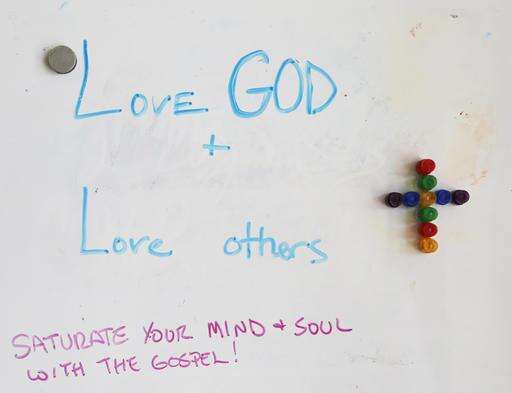 Love GOD
+
Love others
SATURATE YOUR MIND + SOUL
WITH THE GOSPEL!